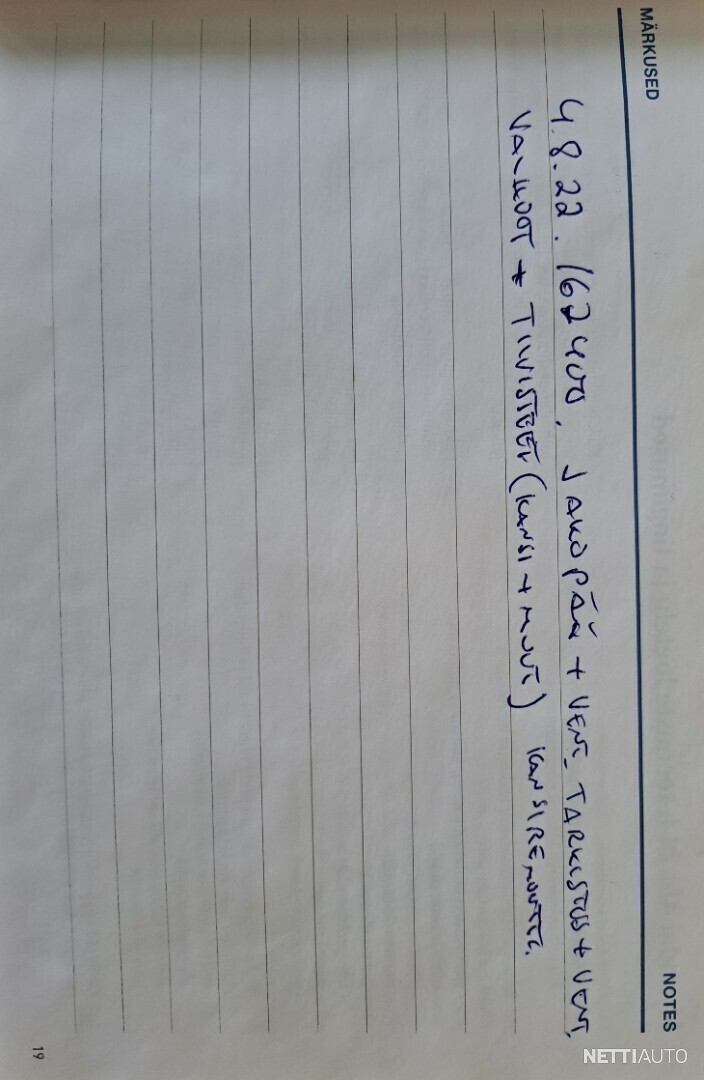 MÄRKUSED NOTES
4.8.22. 162400, JAKOPÄÄ + VENT. TARKISTUS + VENT.
VAIHDOT + TIIVISTEET (KANSI + MUUT) KANSIREMONTTI.
19
NETTIAUTO